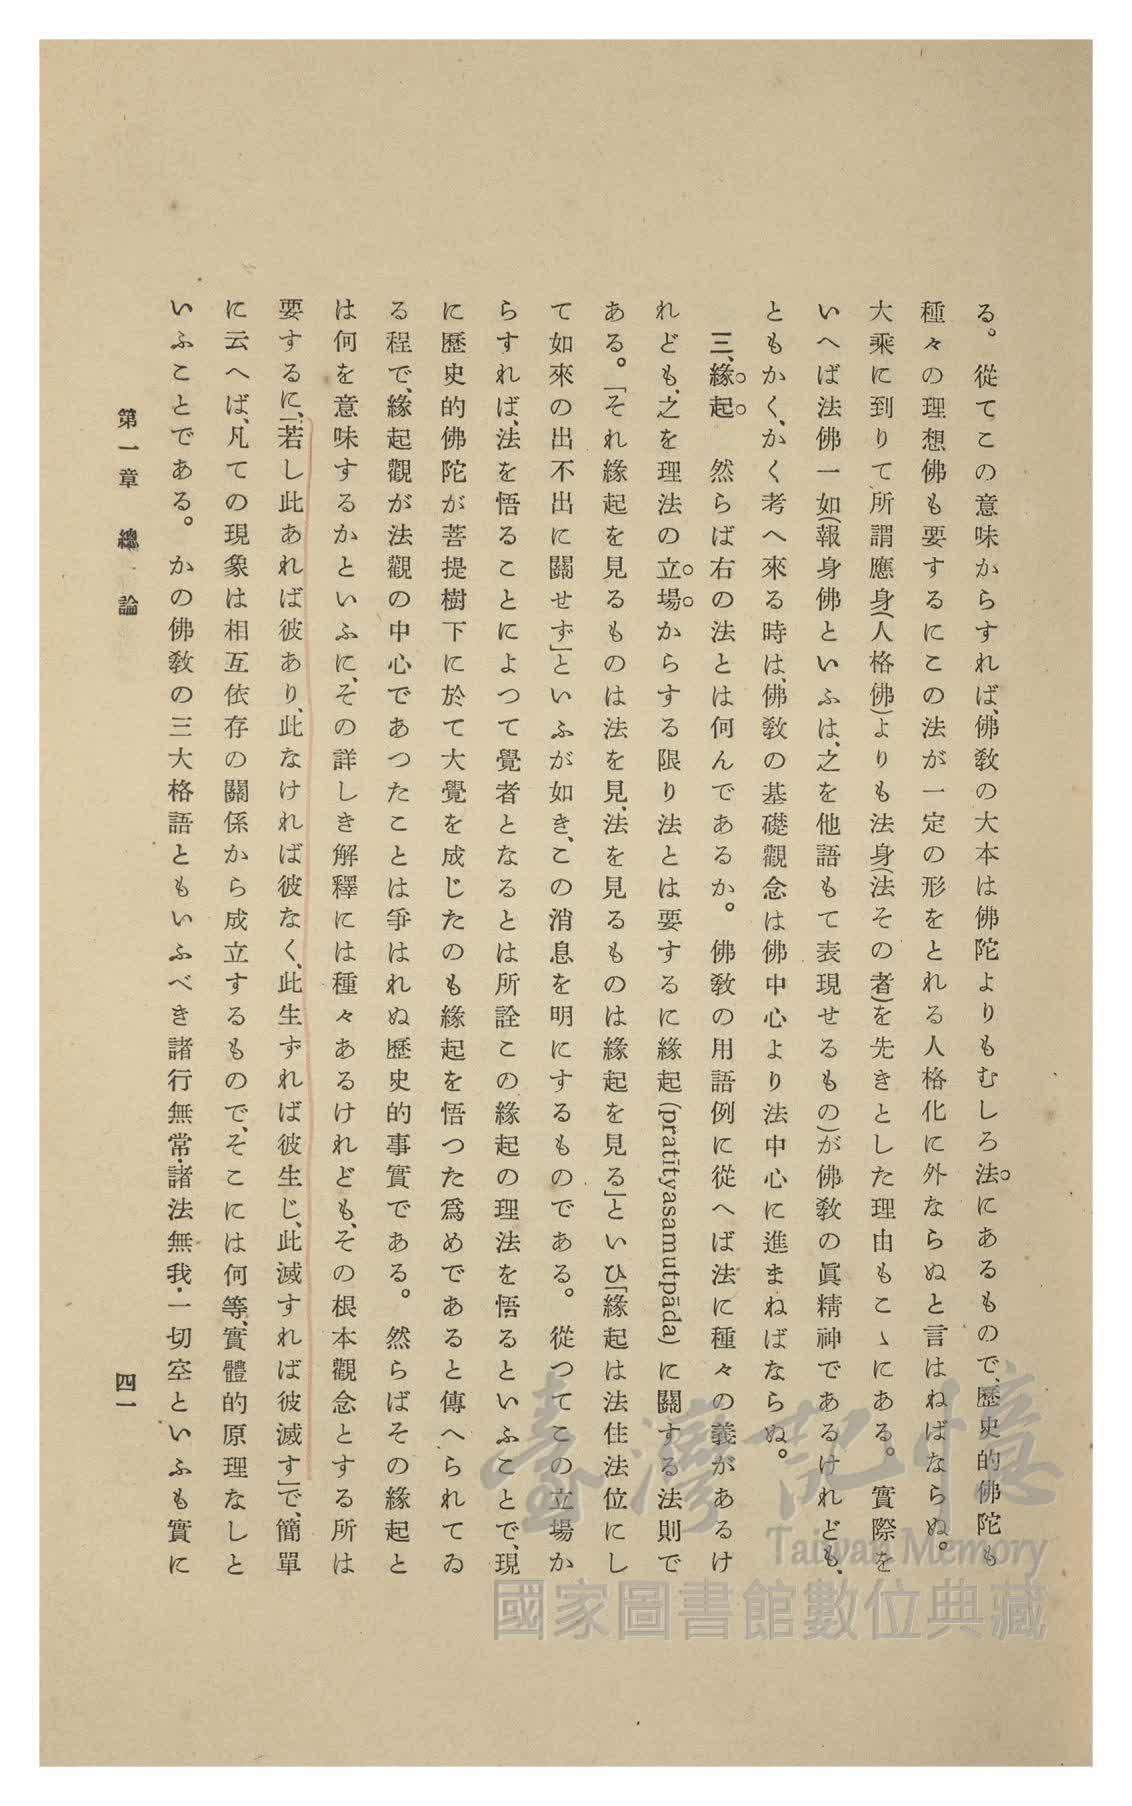 る。從てこの意味からすれば、佛敎の大本は佛陀よりもむしろ法にあるもので、歷史的佛陀も
種々の理想佛も要するにこの法が一定の形をとれる人格化に外ならぬと言はねばならぬ。
大乘に到りて所謂應身(人格佛)よりも法身(法その者)を先きとした理由もこゝにある。實際を
いへば法佛一如(報身佛といふは、之を他語もて表現せるもの)が佛敎の眞精神であるけれども、
ともかく、かく考へ來る時は、佛敎の基礎觀念は佛中心より法中心に進まねばならぬ。
三、緣起 然らば右の法とは何んであるか。佛敎の用語例に從へば法に種々の義があるけ
れども、之を理法の立場からする限り法とは要するに緣起(pratītyasamutpāda)に關する法則で
ある。「それ緣起を見るものは法を見、法を見るものは緣起を見る」といひ「緣起は法住法位にし
て如來の出不出に關せず」といふが如き、この消息を明にするものである。從つてこの立場か
らすれば、法を悟ることによつて覺者となるとは所詮この緣起の理法を悟るといふことで、現
に歷史的佛陀が菩提樹下に於て大覺を成じたのも緣起を悟つた爲めであると傳へられてゐ
る程で、緣起觀が法觀の中心であつたことは爭はれぬ歷史的事實である。然らばその緣起と
は何を意味するかといふに、その詳しき解釋には種々あるけれども、その根本觀念とする所は
要するに、「若し此あれば彼あり、此なければ彼なく、此生ずれば彼生じ、此滅すれば彼滅す」で、簡單
に云へば、凡ての現象は相互依存の關係から成立するもので、そこには何等、實體的原理なしと
いふことである。かの佛敎の三大格語ともいふべき諸行無常・諸法無我・一切空といふも實に
第一章 總論
四一
臺灣記憶
Taiwan Memory
國家圖書館數位典藏